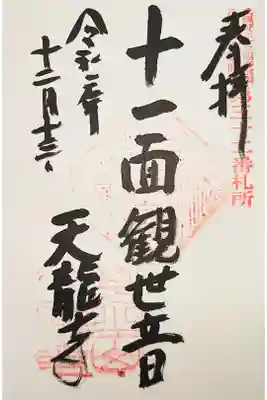 奉拝
十一面観世音
天龍寺
令和二年
十二月十三日
番札所